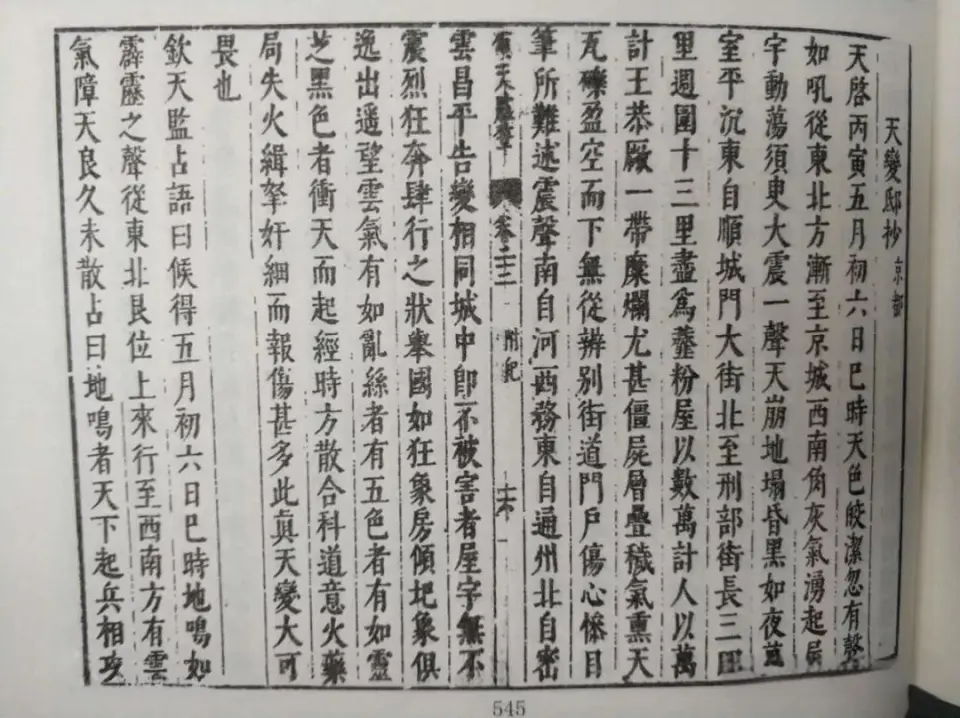 天變邸抄 京都
天啓丙寅五月初六日巳時天色皎潔忽有聲
如吼從東北方漸至京城西南角灰氣湧起屋
宇動蕩須臾大震一聲天崩地塌昏黑如夜萬
室平沉東自順城門大街北至刑部街長三四
里週圍十三里盡爲虀粉屋以數萬計人以萬
計王恭厰一帶糜爛尤甚僵屍層疊穢氣熏天
瓦礫盈空而下無從辨别街道門戸傷心慘目
筆所難述震聲南自河西務東自通州北自密
卷之三
附紀
雲昌平告變相同城中即不被害者屋宇無不
震烈狂奔肆行之狀舉國如狂象房傾圮象俱
逸出遥望雲氣有如亂絲者有五色者有如靈
芝黑色者衝天而起經時方散合科道意火藥
局失火緝拏奸細而報傷甚多此眞天變大可
畏也
欽天監占語曰候得五月初六日巳時地鳴如
霹靂之聲從東北艮位上來行至西南方有雲
氣障天良久未散占曰地鳴者天下起兵相攻
545